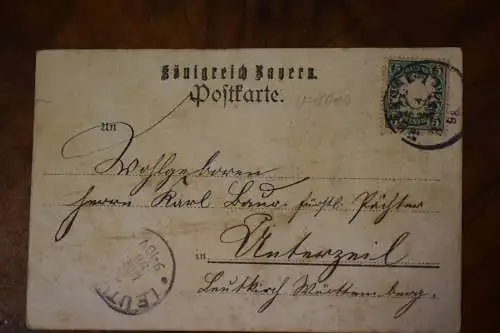 Königreich Bayern.
Postkarte.
An
Wohlgeboren
Herrn Karl Baur, fürstl. Pächter
in Unterzeil
Leutkirch Württemberg.
98
LEUT